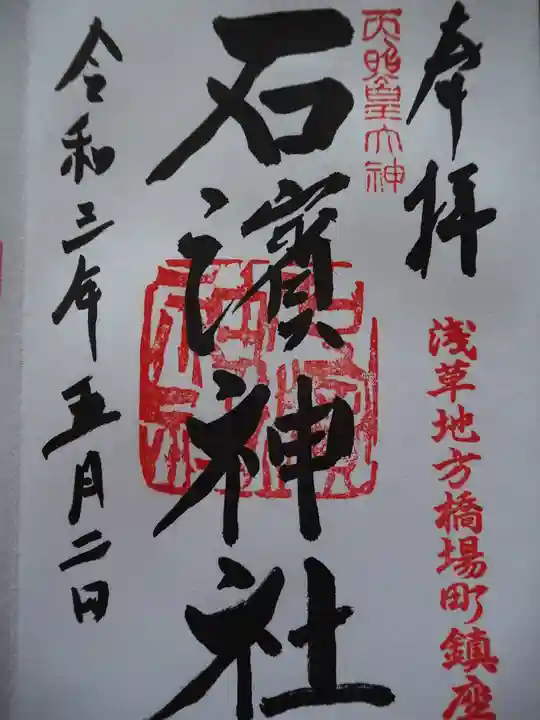 奉拝
浅草地方橋場町鎮座
天照皇大神
石濱神社
令和三年五月二日